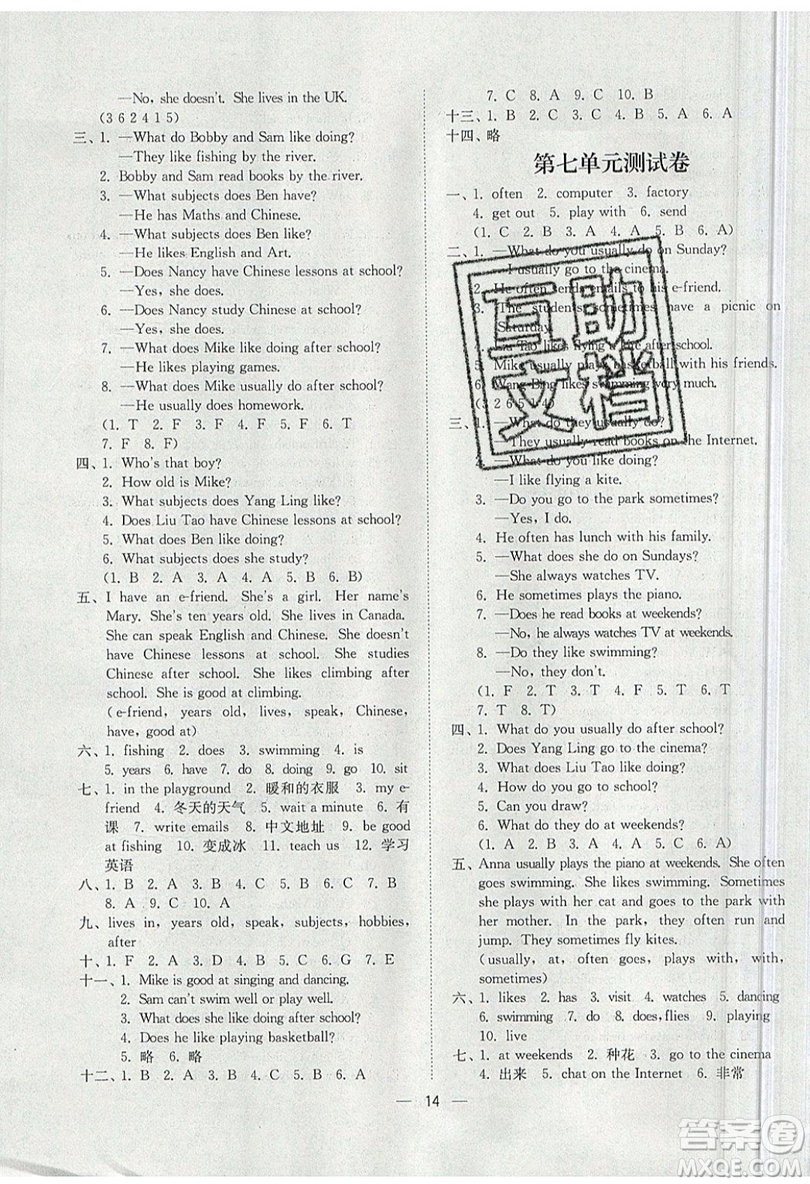 —No, she doesn't. She lives in the UK.
(3 6 2 4 1 5)
三、1. —What do Bobby and Sam like doing?
—They like fishing by the river.
2. Bobby and Sam read books by the river.
3. —What subjects does Ben have?
—He has Maths and Chinese.
4. —What subjects does Ben like?
—He likes English and Art.
5. —Does Nancy have Chinese lessons at school?
—Yes, she does.
6. —Does Nancy study Chinese at school?
—Yes, she does.
7. —What does Mike like doing after school?
—He likes playing games.
8. —What does Mike usually do after school?
—He usually does homework.
(1. T 2. F 3. F 4. F 5. T 6. T
7. F 8. F)
四、1. Who's that boy?
2. How old is Mike?
3. What subjects does Yang Ling like?
4. Does Liu Tao have Chinese lessons at school?
5. What does Ben like doing?
6. What subjects does she study?
(1. B 2. A 3. A 4. A 5. B 6. B)
五、I have an e-friend. She's a girl. Her name's
Mary. She's ten years old. She lives in Canada.
She can speak English and Chinese. She doesn't
have Chinese lessons at school. She studies
Chinese after school. She likes climbing after
school. She is good at climbing.
(e-friend, years old, lives, speak, Chinese,
have, good at)
六、1. fishing 2. does 3. swimming 4. is
5. years 6. have 7. do 8. doing 9. go 10. sit
七、1. in the playground 2. 暖和的衣服 3. my e-
friend 4. 冬天的天气 5. wait a minute 6. 有
课 7. write emails 8. 中文地址 9. be good
at fishing 10. 变成冰 11. teach us 12. 学习
英语
八、1. B 2. A 3. B 4. C 5. B 6. B 7. B
8. A 9. C 10. A
九、lives in, years old, speak, subjects, hobbies,
after
十、1. F 2. A 3. D 4. B 5. C 6. G 7. E
十一、1. Mike is good at singing and dancing.
2. Sam can't swim well or play well.
3. What does she like doing after school?
4. Does he like playing basketball?
5. 略 6. 略
十二、1. B 2. A 3. C 4. A 5. B 6. B
7. C 8. A 9. C 10. B
十三、1. B 2. C 3. B 4. C 5. A 6. A
十四、略
第七单元测试卷
一、1. often 2. computer 3. factory
4. get out 5. play with 6. send
(1. C 2. B 3. A 4. A 5. B 6. A)
二、1. —What do you usually do on Sunday?
—I usually go to the cinema.
2. He often sends emails to his e-friend.
3. The students sometimes have a picnic on
Saturday.
4. Liu Tao likes flying a kite after school.
5. Mike usually plays basketball with his friends.
6. Wang Bing likes swimming very much.
(3 2 6 5 1 4)
三、1. —What do they usually do?
—They usually read books on the Internet.
2. —What do you like doing?
—I like flying a kite.
3. —Do you go to the park sometimes?
—Yes, I do.
4. He often has lunch with his family.
5. —What does she do on Sundays?
—She always watches TV.
6. He sometimes plays the piano.
7. —Does he read books at weekends?
—No, he always watches TV at weekends.
8. —Do they like swimming?
—No, they don't.
(1. F 2. T 3. F 4. F 5. T 6. T
7. T 8. T)
四、1. What do you usually do after school?
2. Does Yang Ling go to the cinema?
3. What does Liu Tao like doing?
4. How do you go to school?
5. Can you draw?
6. What do they do at weekends?
(1. A 2. B 3. B 4. A 5. C 6. A)
五、Anna usually plays the piano at weekends. She often
goes swimming. She likes swimming. Sometimes
she plays with her cat and goes to the park with
her mother. In the park, they often run and
jump. They sometimes fly kites.
(usually, at, often, goes, likes, with, with,
often, sometimes)
六、1. likes 2. has 3. visit 4. watches 5. dancing
6. swimming 7. do 8. does, flies 9. playing
10. live
七、1. at weekends 2. 种花 3. go to the cinema
4. 出来 5. chat on the Internet 6. 非常
— 14 —
互助
文档
答案圈
MXQE.COM